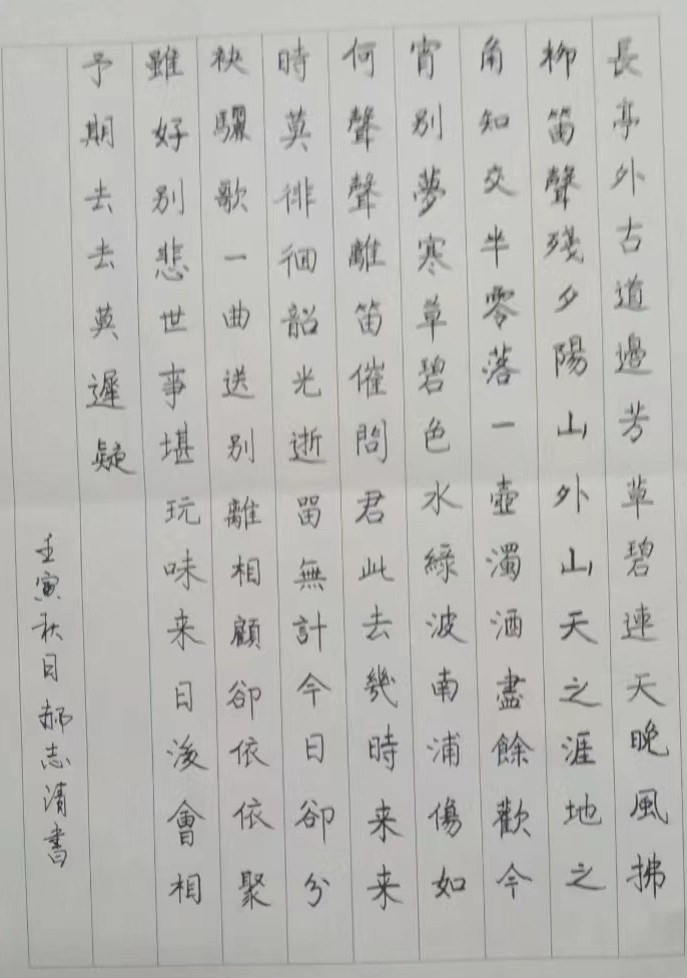 長亭外古道邊芳草碧連天晚風拂
柳笛聲殘夕陽山外山天之涯地之
角知交半零落一壺濁酒盡餘歡今
宵別夢寒草碧色水綠波南浦傷如
何聲聲離笛催問君此去幾時来来
時莫徘徊韶光逝留無計今日卻分
袂驪歌一曲送別離相顧卻依依聚
雖好別悲世事堪玩味来日後會相
予期去去莫遲疑
壬寅秋日郝志清書